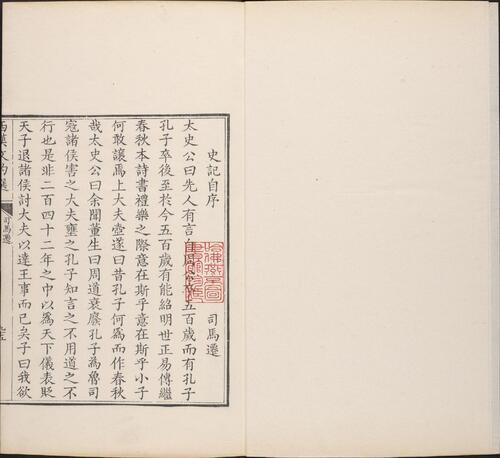 史記自序 司馬遷
太史公曰先人有言自周公卒五百歲而有孔子
孔子卒後至於今五百歲有能紹明世正易傳繼
春秋本詩書禮樂之際意在斯乎意在斯乎小子
何敢讓焉上大夫壺遂曰昔孔子何爲而作春秋
哉太史公曰余聞董生曰周道衰廢孔子爲魯司
寇諸侯害之大夫壅之孔子知言之不用道之不
行也是非二百四十二年之中以爲天下儀表貶
天子退諸侯討大夫以達王事而已矣子曰我欲
西漢文約選 司馬遷